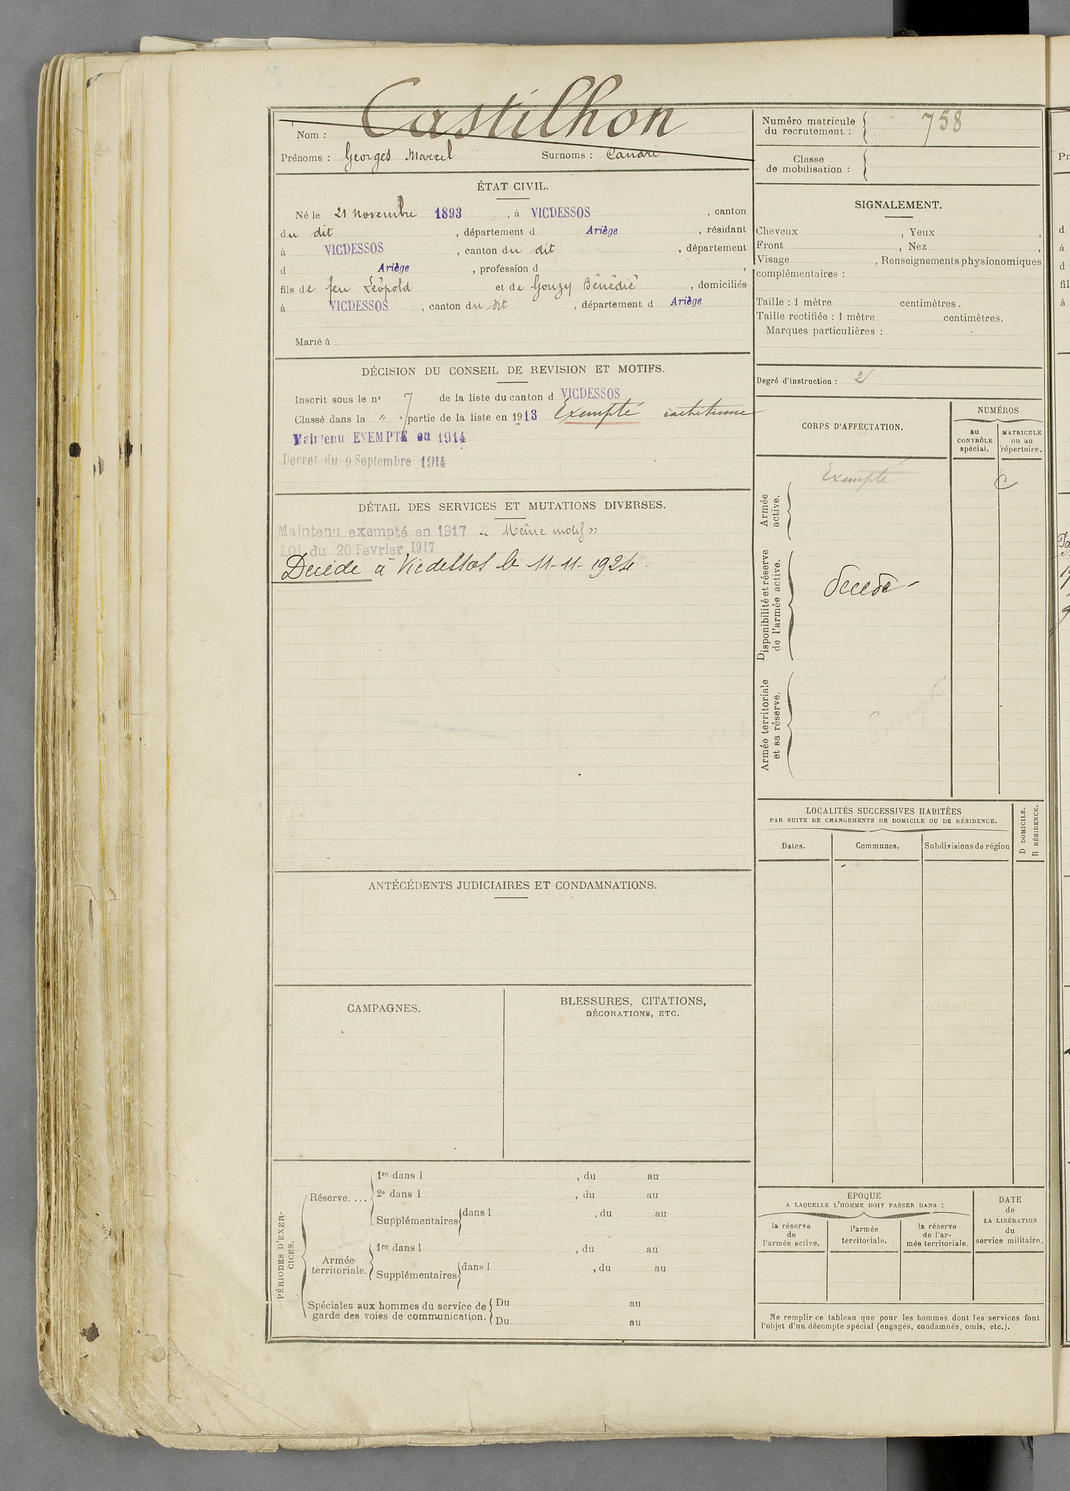 Nom : Castilhon
Prénoms : Georges Marcel Surnoms :
Numéro matricule du recrutement : 758
Classe de mobilisation :
ÉTAT CIVIL.
Né le 21 novembre 1893, à VICDESSOS, canton
du dit, département d Ariège, résidant
à VICDESSOS, canton du dit, département
d Ariège, profession d
fils de feu Léopold et de Gouzy Bénédie, domiciliés
à VICDESSOS, canton du dit, département d Ariège
Marié à
SIGNALEMENT.
Cheveux , Yeux ,
Front , Nez ,
Visage , Renseignements physionomiques
complémentaires :
Taille : 1 mètre centimètres.
Taille rectifiée : 1 mètre centimètres.
Marques particulières :
Degré d'instruction : 2
DÉCISION DU CONSEIL DE REVISION ET MOTIFS.
Inscrit sous le n° 7 de la liste du canton d VICDESSOS
Classé dans la " e partie de la liste en 1913 Exempté rachitisme
Maintenu EXEMPTÉ en 1914
Décret du 9 Septembre 1914
DÉTAIL DES SERVICES ET MUTATIONS DIVERSES.
Maintenu exempté en 1917 " Même motif "
LOI du 20 Fevrier 1917
Décédé à Vicdessos le 11-11-1924.
CORPS D'AFFECTATION.
NUMÉROS
au CONTRÔLE spécial.
MATRICULE ou au répertoire.
Armée active.
Exempté
Disponibilité et réserve de l'armée active.
Décédé
Armée territoriale et sa réserve.
Exempté
LOCALITÉS SUCCESSIVES HABITÉES
PAR SUITE DE CHANGEMENTS DE DOMICILE OU DE RÉSIDENCE.
Dates. Communes. Subdivisions de région
D DOMICILE.
R RÉSIDENCE.
ANTÉCÉDENTS JUDICIAIRES ET CONDAMNATIONS.
CAMPAGNES.
BLESSURES, CITATIONS,
DÉCORATIONS, ETC.
PÉRIODES D'EXERCICES.
Réserve....
1re dans l , du au
2e dans l , du au
Supplémentaires dans l , du au
Armée territoriale.
1re dans l , du au
Supplémentaires dans l , du au
Spéciales aux hommes du service de garde des voies de communication.
Du au
Du au
EPOQUE
A LAQUELLE L'HOMME DOIT PASSER DANS :
la réserve de l'armée active.
l'armée territoriale.
la réserve de l'armée territoriale.
DATE de LA LIBÉRATION du service militaire.
Ne remplir ce tableau que pour les hommes dont les services font
l'objet d'un décompte spécial (engagés, condamnés, omis, etc.).